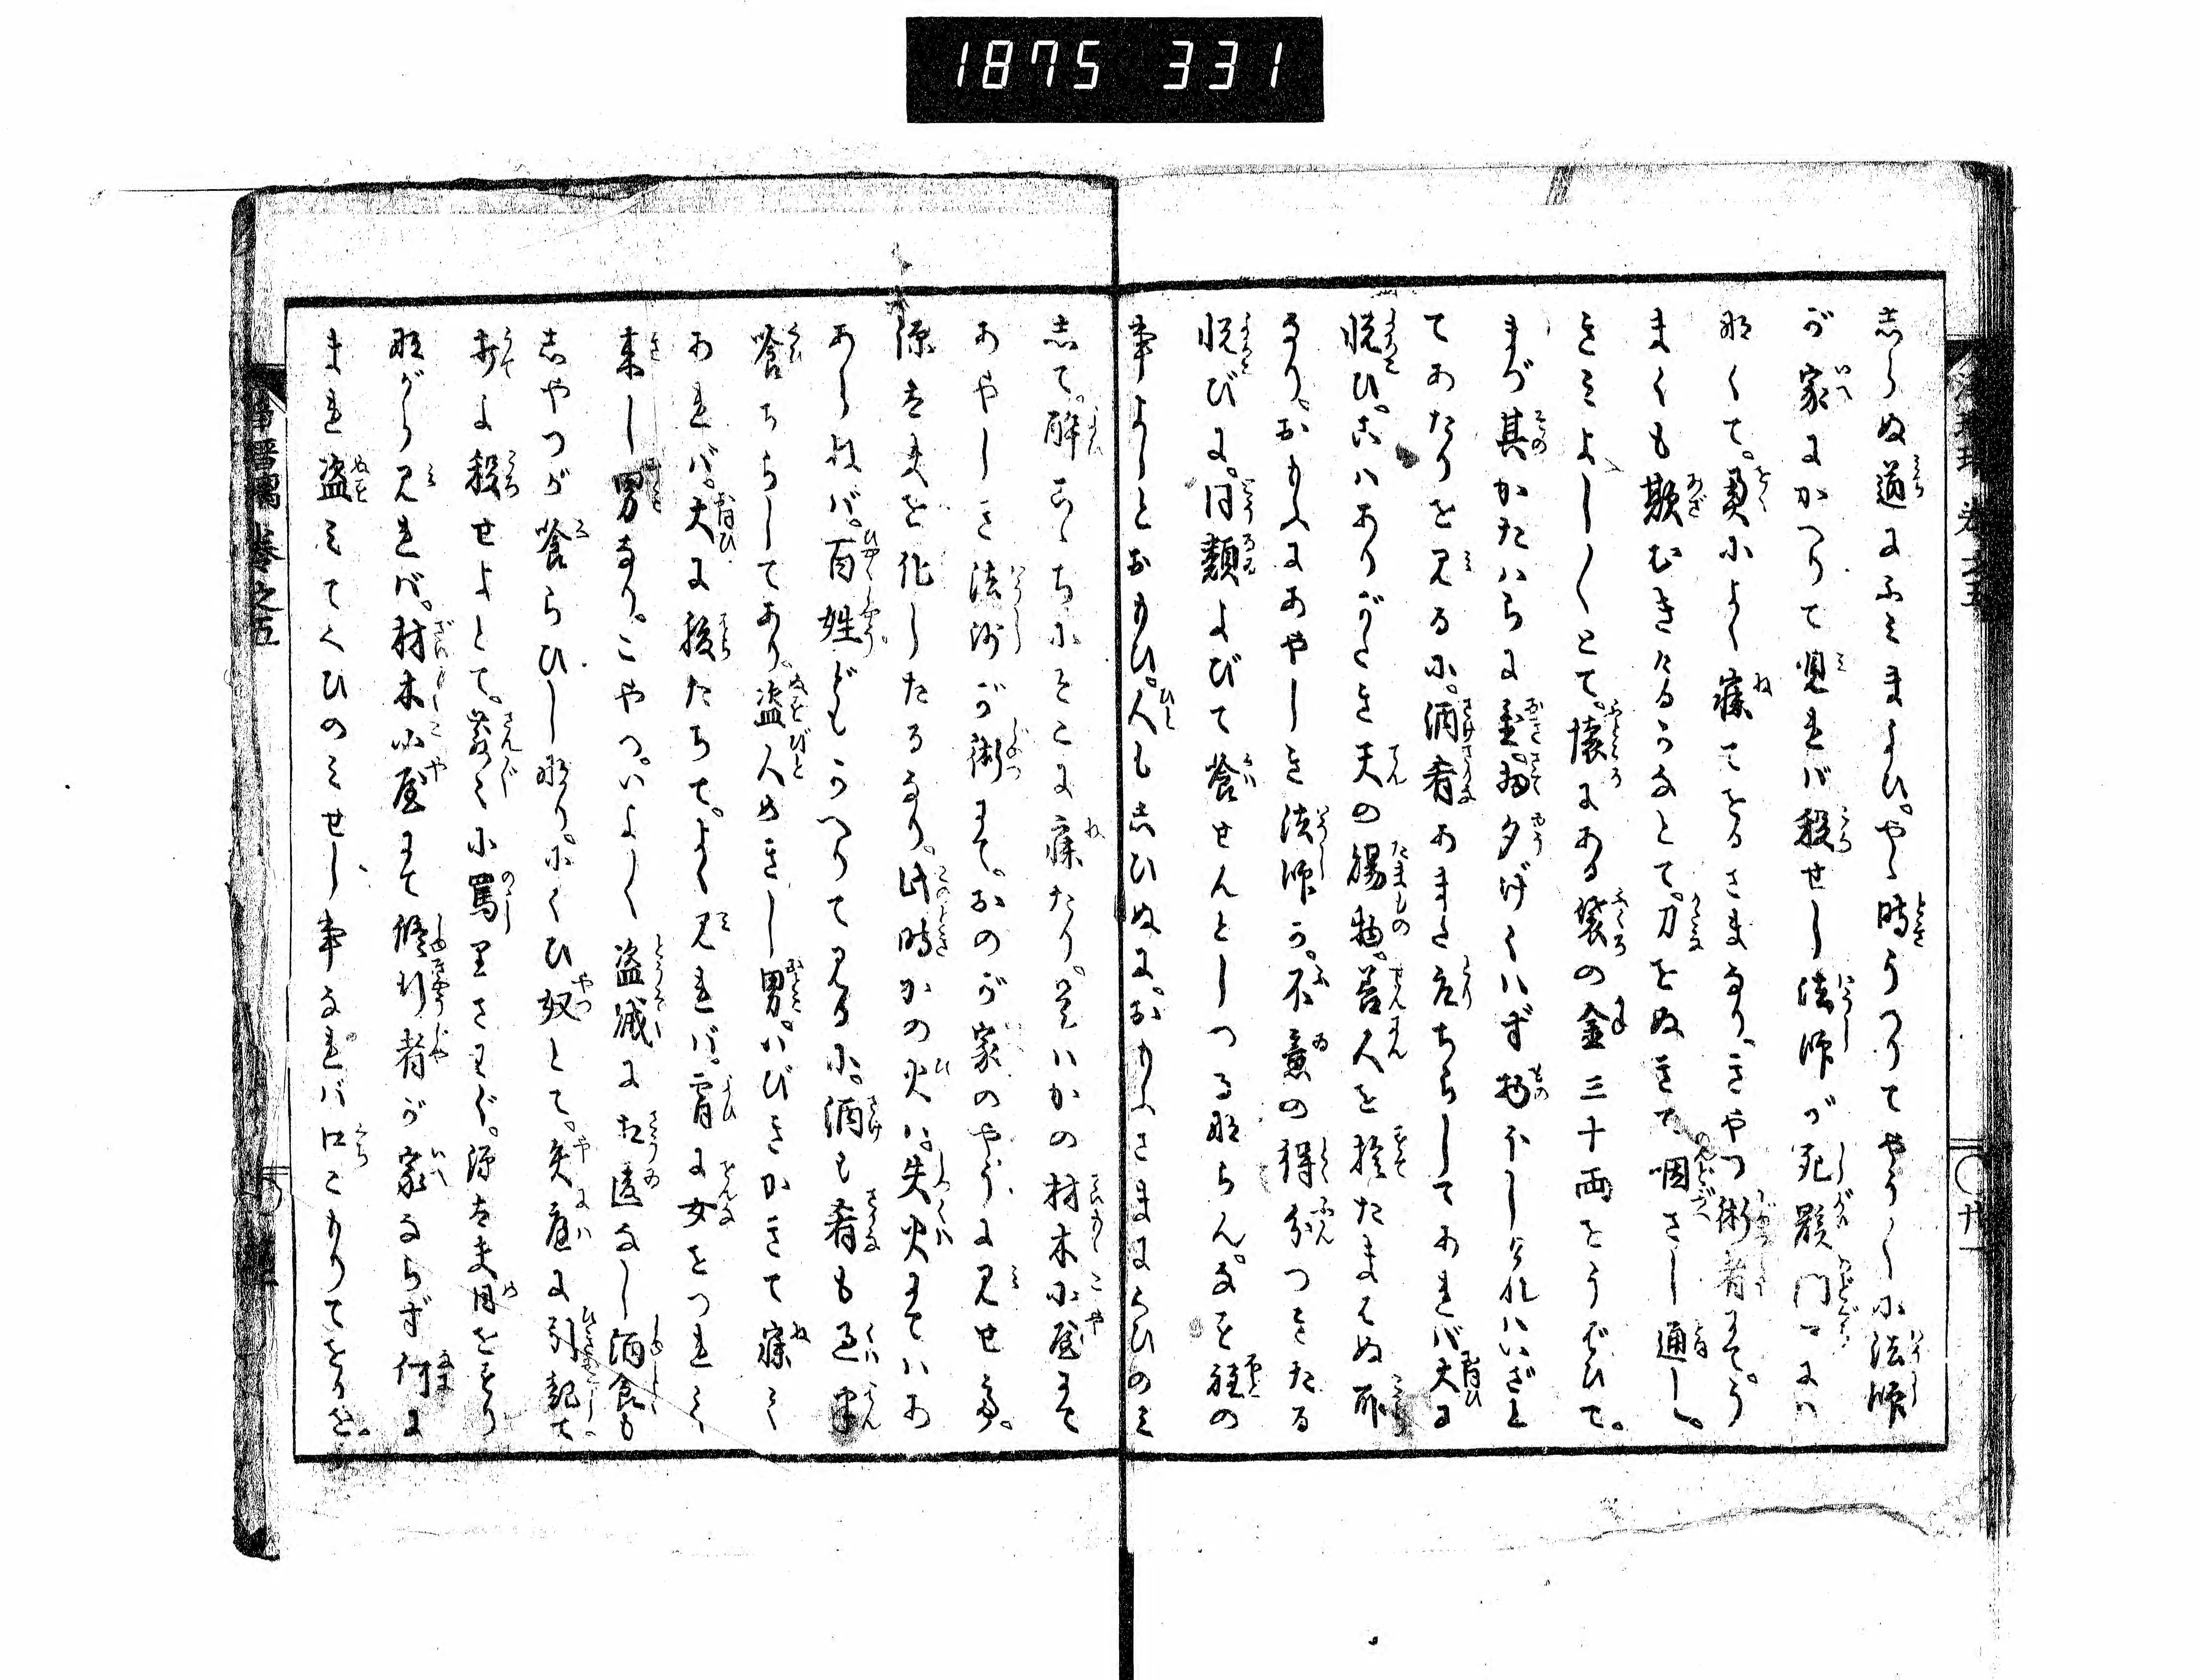 1875 331
しらぬ道にふみまよひ。やゝ時うつりてやう〳〵に法師
が家にかへりて見れば殺せし法師が死骸門口には
なくて。奥によく寐てをるさまなり。きやつ術者にて。う
まくも欺むきけるうなとて。刀をぬきて咽さし通し。
きみよし〳〵とて。懐にある袋の金三十両をうばひて。
まづ其かたはらに置。扨夕げくはず物ほしければいざと
てあたりを見るに。酒肴あまた取ちらしてあれば大に
悦ひ。こはありがたき天の賜物。善人を捨たまはぬ所
なり。おもふにあやしき法師か。不意の得分つきたる
悦びに。同類よびて養せんとしつるならん。なぞ種の
事よしとおもひ。人もしひぬに。おもふさまにくらひのみ
して。酔こゝちにそこに寐たり。是はかの材木小屋にて
あやしき法師が術にて。おのが家のやうに見せ。
源太夫を化したるなり。此時かの火は。失火にてはあ
あらねば。百姓どもかへりて見るに。酒も肴も過半
喰ちらしてあり。盗人めきし男。いびきかきて寐て
あれば。大に腹たちて。よく見れば。宵に女をつれて
来し男なり。こやつ。いよ〳〵盗賊に相違なし酒食も
しやつが喰らひしなり。にくひ奴とて。矢庭に引起て
打よ殺せよとて。散々に罵りさわぐ。源太夫目をすり
ながら見れば。材木小屋にて修行者が家ならず何に
まれ盗みてくひのみせし事なれば口こもりてをるを。